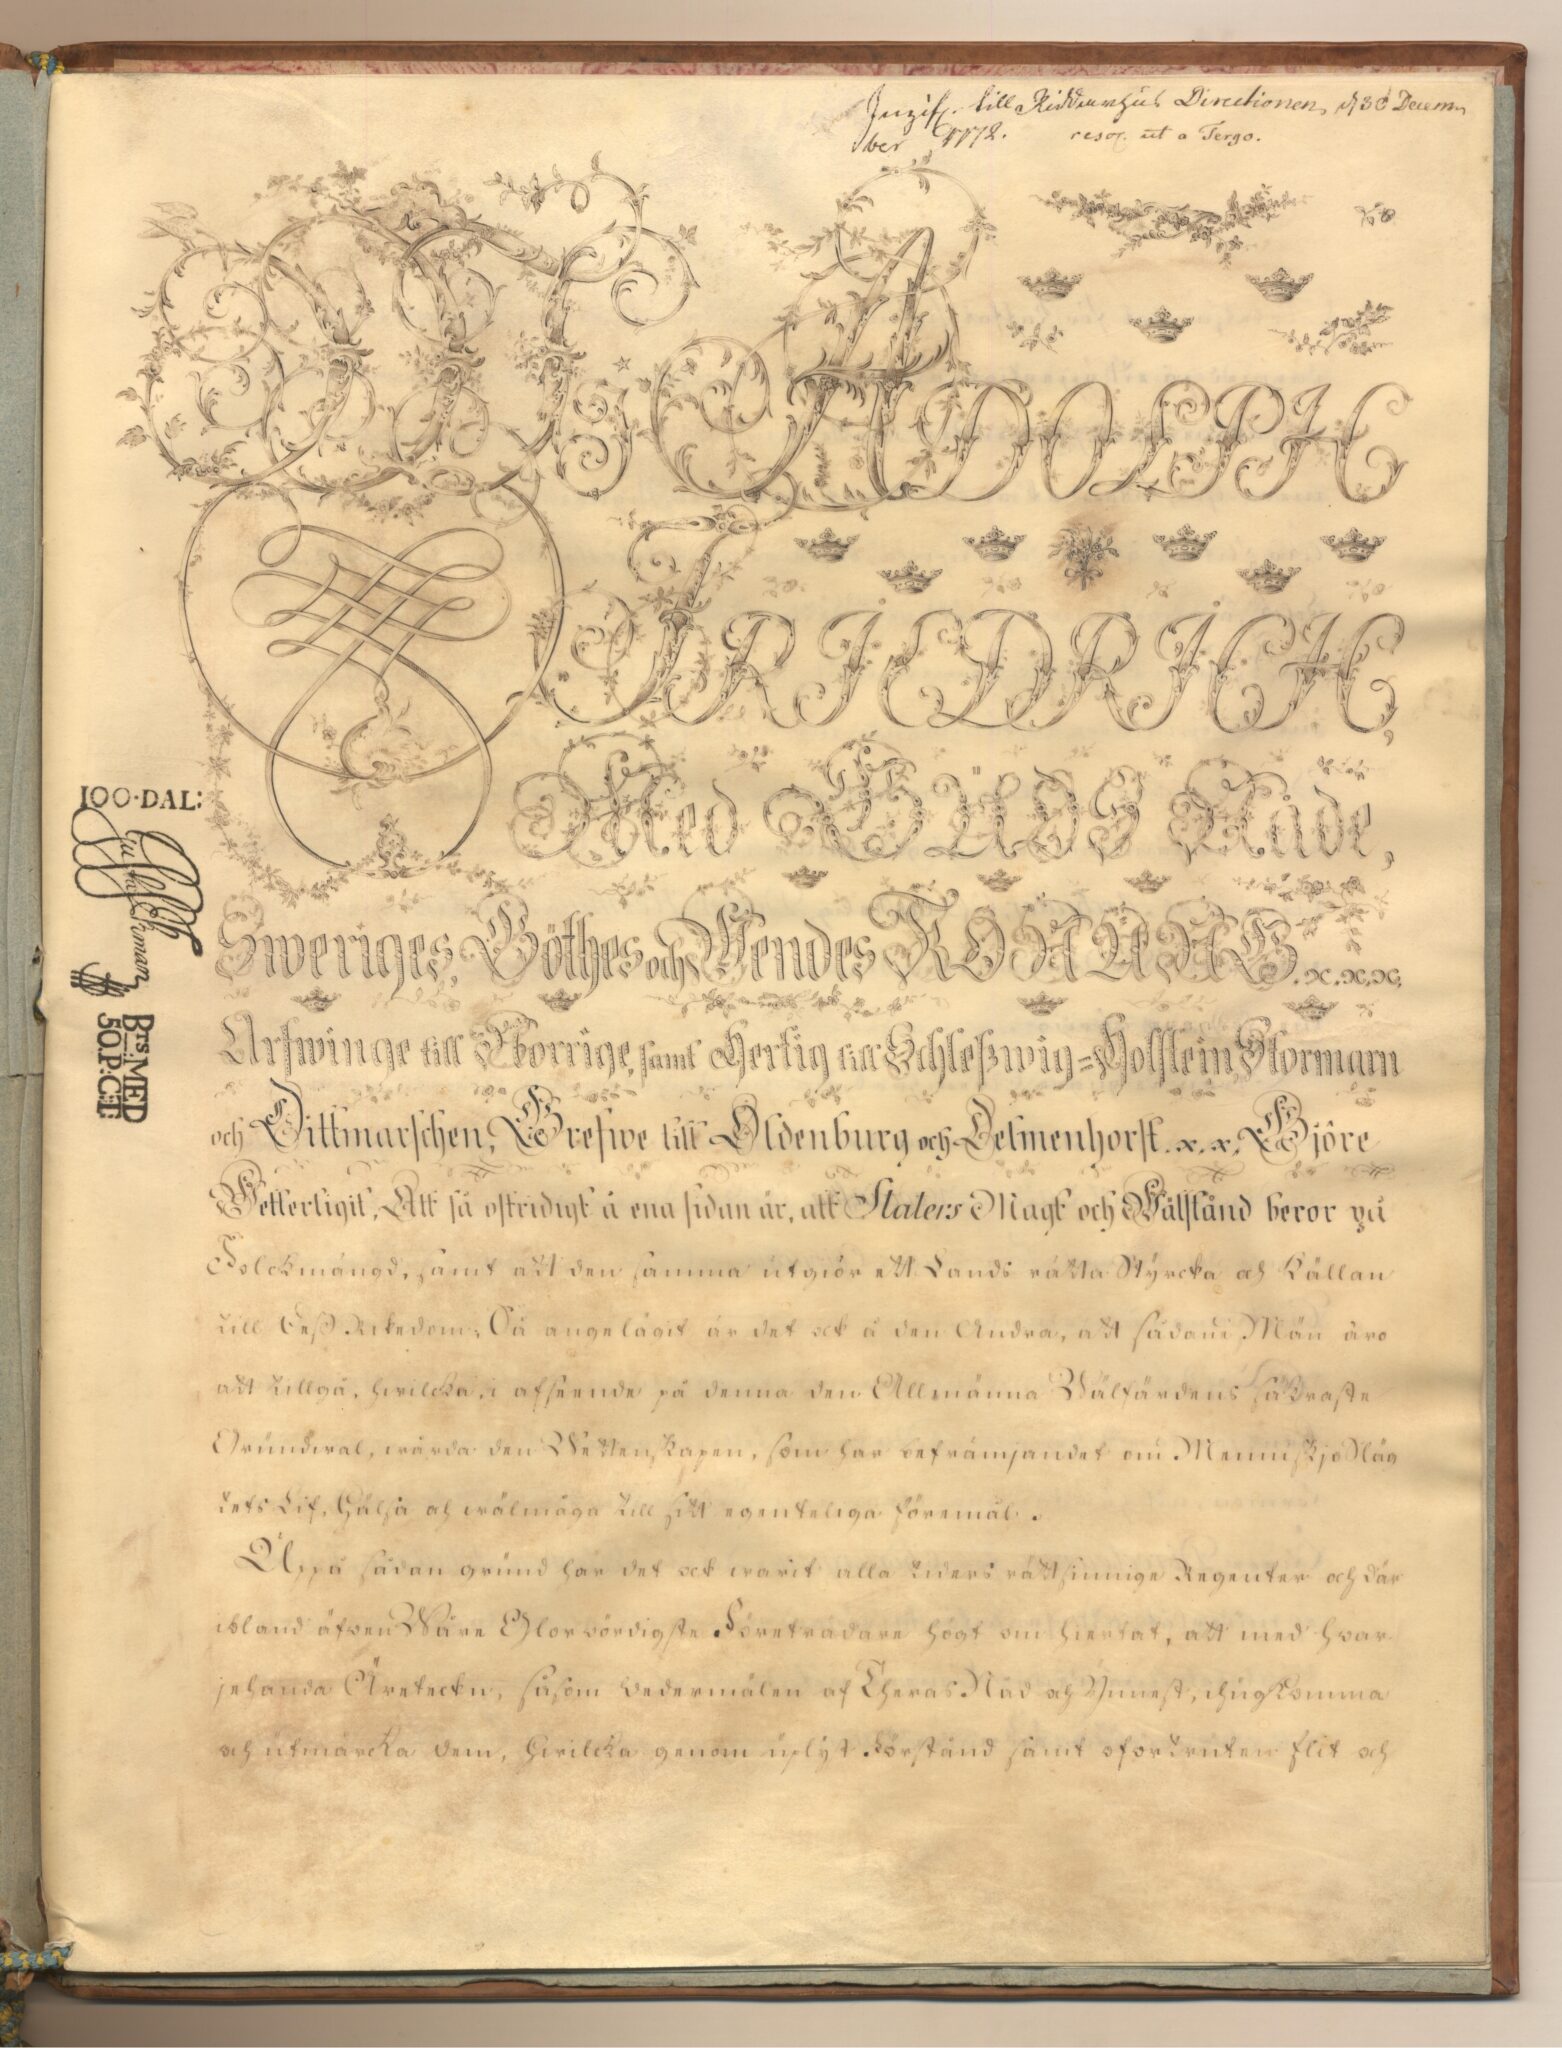 till Riddarhus Directionen, d 30 Decem
ber 1772. resol. ut a Tergo.
WI ADOLPH
FRIEDRICH,
Med GUDS Nåde,
Sweriges, Göthes och Wendes KONUNG. x. x. x.
100·DAL:
Brs:MED
50.P:C:T:
Arfwinge till Norrige, samt Hertig till Schleßwig=Holstein, Stormarn
och Dittmarschen, Grefwe till Oldenburg och Delmenhorst. x. x. Gjöre
Wetterligit, Att så ostridigt å ena sidan är, att Staters Magt och Wälstånd beror på
Folckmängd, samt att den samma utgiör ett Lands rätta Styrcka och Källan
till Deß Rikedom; Så angelägit är det ock å den Andra, att sådane Män äro
att tillgå, hwilcka, i afseende på denna den Allmänna Wälfärdens säkraste
Grundwal, wårda den Wettenskapen, som har befrämjandet om Menniskjo Släg
tets Lif, Hälsa och wälmåga till sitt egenteliga föremål.
Uppå sådan grund har det ock warit alla tiders rättsinnige Regenter och där
ibland äfven Wåre Glorvördigste Företrädare högt om hiertat, att med hvar
jehanda Äreteckn, såsom vedermälen af Theras Nåd och Ynnest, ihugkomma
och utmärcka dem, hwilcka genom uplyst förstånd samt oförtruten flit och